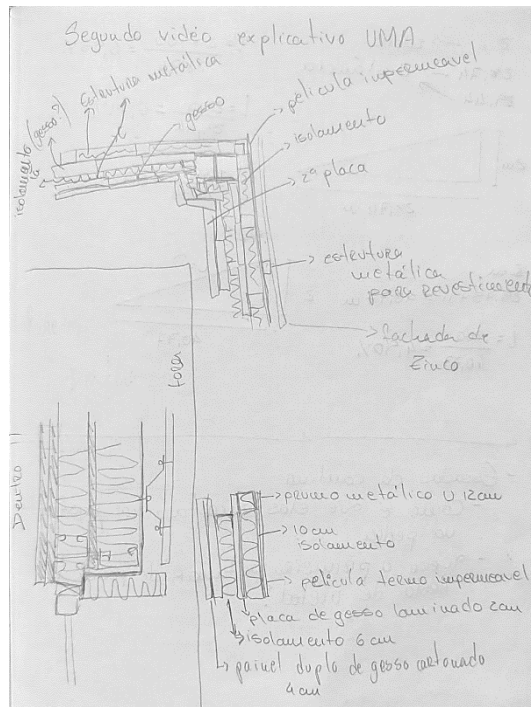 Segundo vidéo explicativo UMA
estrutura metálica
isolamento (gesso?)
gesso
película impermeável
isolamento
2ª placa
estrutura
metálica
para revestimento
fachada de
Zinco
Dentro
fora
prumo metálico U 12cm
10cm
isolamento
película termo impermeável
placa de gesso laminado 2cm
isolamento 6cm
painel duplo de gesso cartonado
4cm